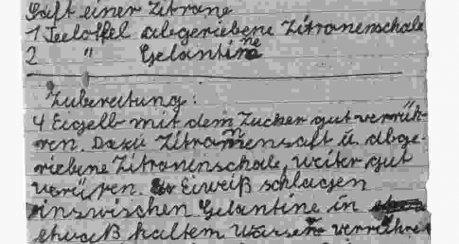 Saft einer Zitrone
1 Teelöffel abgeriebene Zitronenschale
2 " Gelantine
Zubereitung:
4 Eigelb mit dem Zucker gut verrüh-
ren. Dazu Zitronensaft u. abge-
riebene Zitronenschale, weiter gut
verüren. Eiweiß schlagen
inzwischen Gelantine in
etwaß kaltem Wasser verrühre